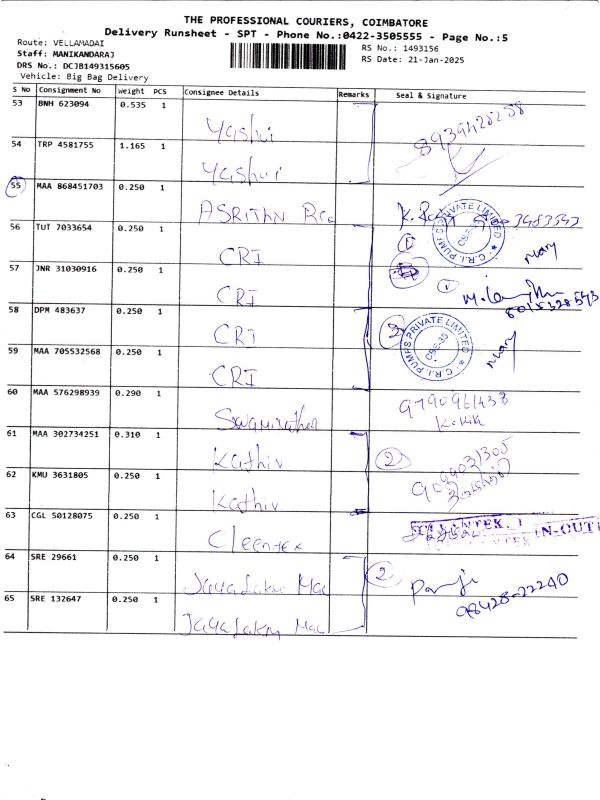 THE PROFESSIONAL COURIERS, COIMBATORE
Delivery Runsheet - SPT - Phone No.:0422-3505555 - Page No.:5
Route: VELLAMADAI
RS No.: 1493156
Staff: MANIKANDARAJ
RS Date: 21-Jan-2025
DRS No.: DCJB149315605
Vehicle: Big Bag Delivery
S No Consignment No Weight PCS Consignee Details Remarks Seal & Signature
53 BNH 623094 0.535 1 Yashvi 8939428258
54 TRP 4581755 1.165 1 Yashvi
55 MAA 868451703 0.250 1 ASRITHN
56 TUT 7033654 0.250 1 CRI 1
C.R.I. PUMPS PRIVATE LIMITED
CBE-35
57 JNR 31030916 0.250 1 CRI 1
58 DPM 483637 0.250 1 CRI 3
C.R.I. PUMPS PRIVATE LIMITED
CBE-35
59 MAA 705532568 0.250 1 CRI
60 MAA 576298939 0.290 1
61 MAA 302734251 0.310 1 Kathiv 2
62 KMU 3631805 0.250 1 Kathiv
63 CGL 50128075 0.250 1 Cleentex IN-OUT
64 SRE 29661 0.250 1 Jaya Lakm Mac 2
98428-22240
65 SRE 132647 0.250 1 Jaya Lakm Mac